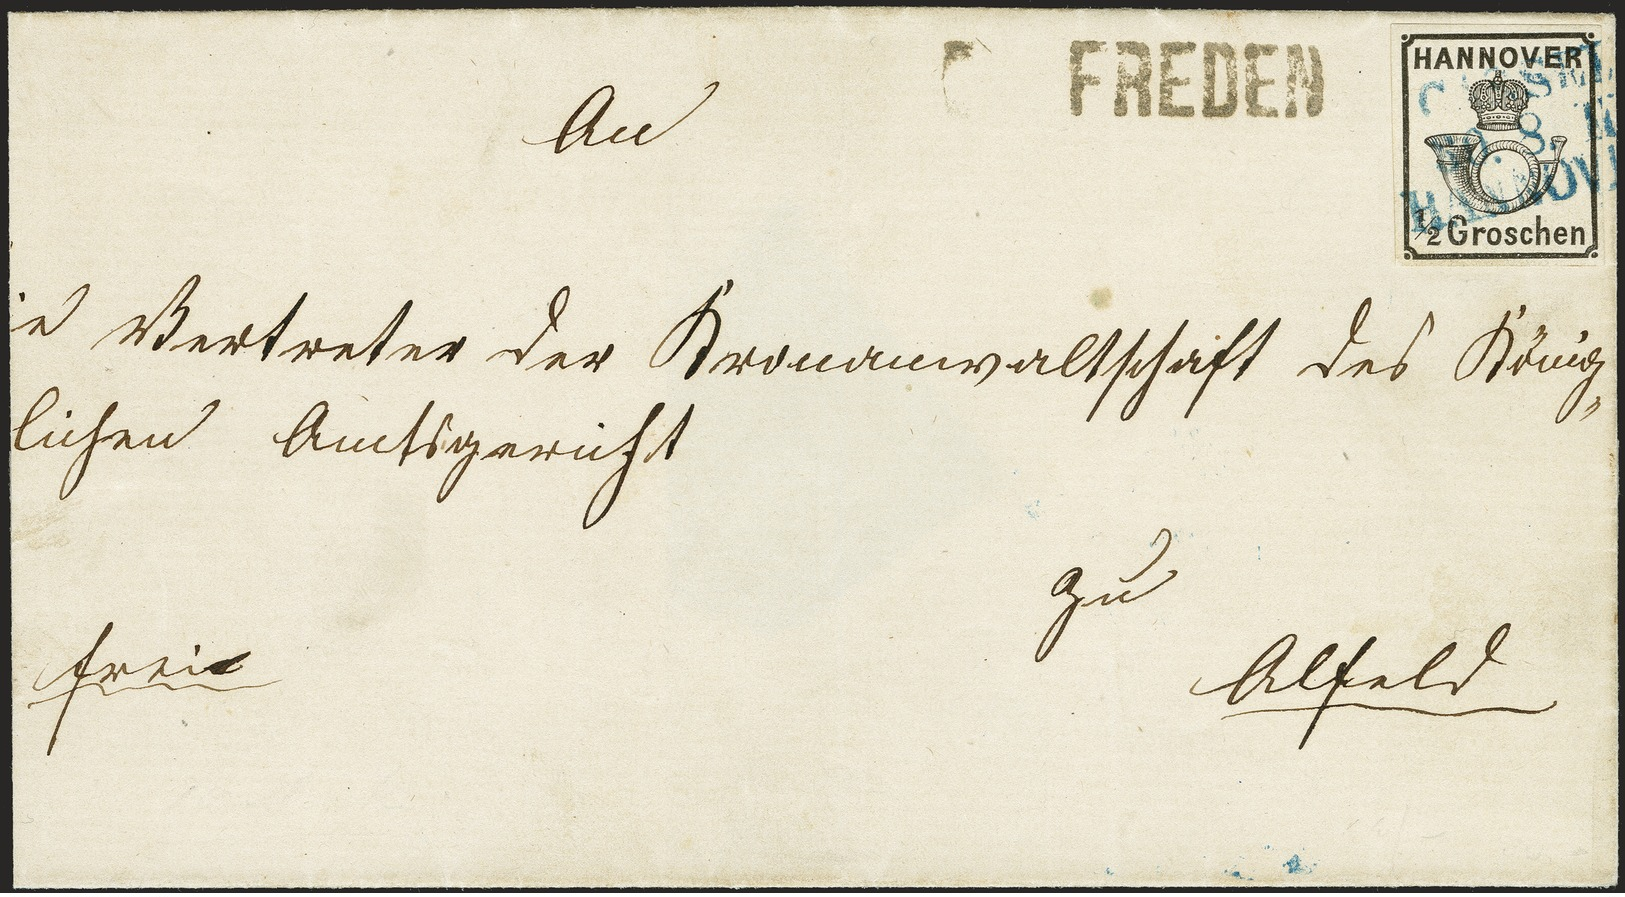 FREDEN
HANNOVER
1/2 Groschen
An
ie Vertreter der Kronanwaltschaft des König„
lichen Amtsgericht
zu
Alfeld
frei